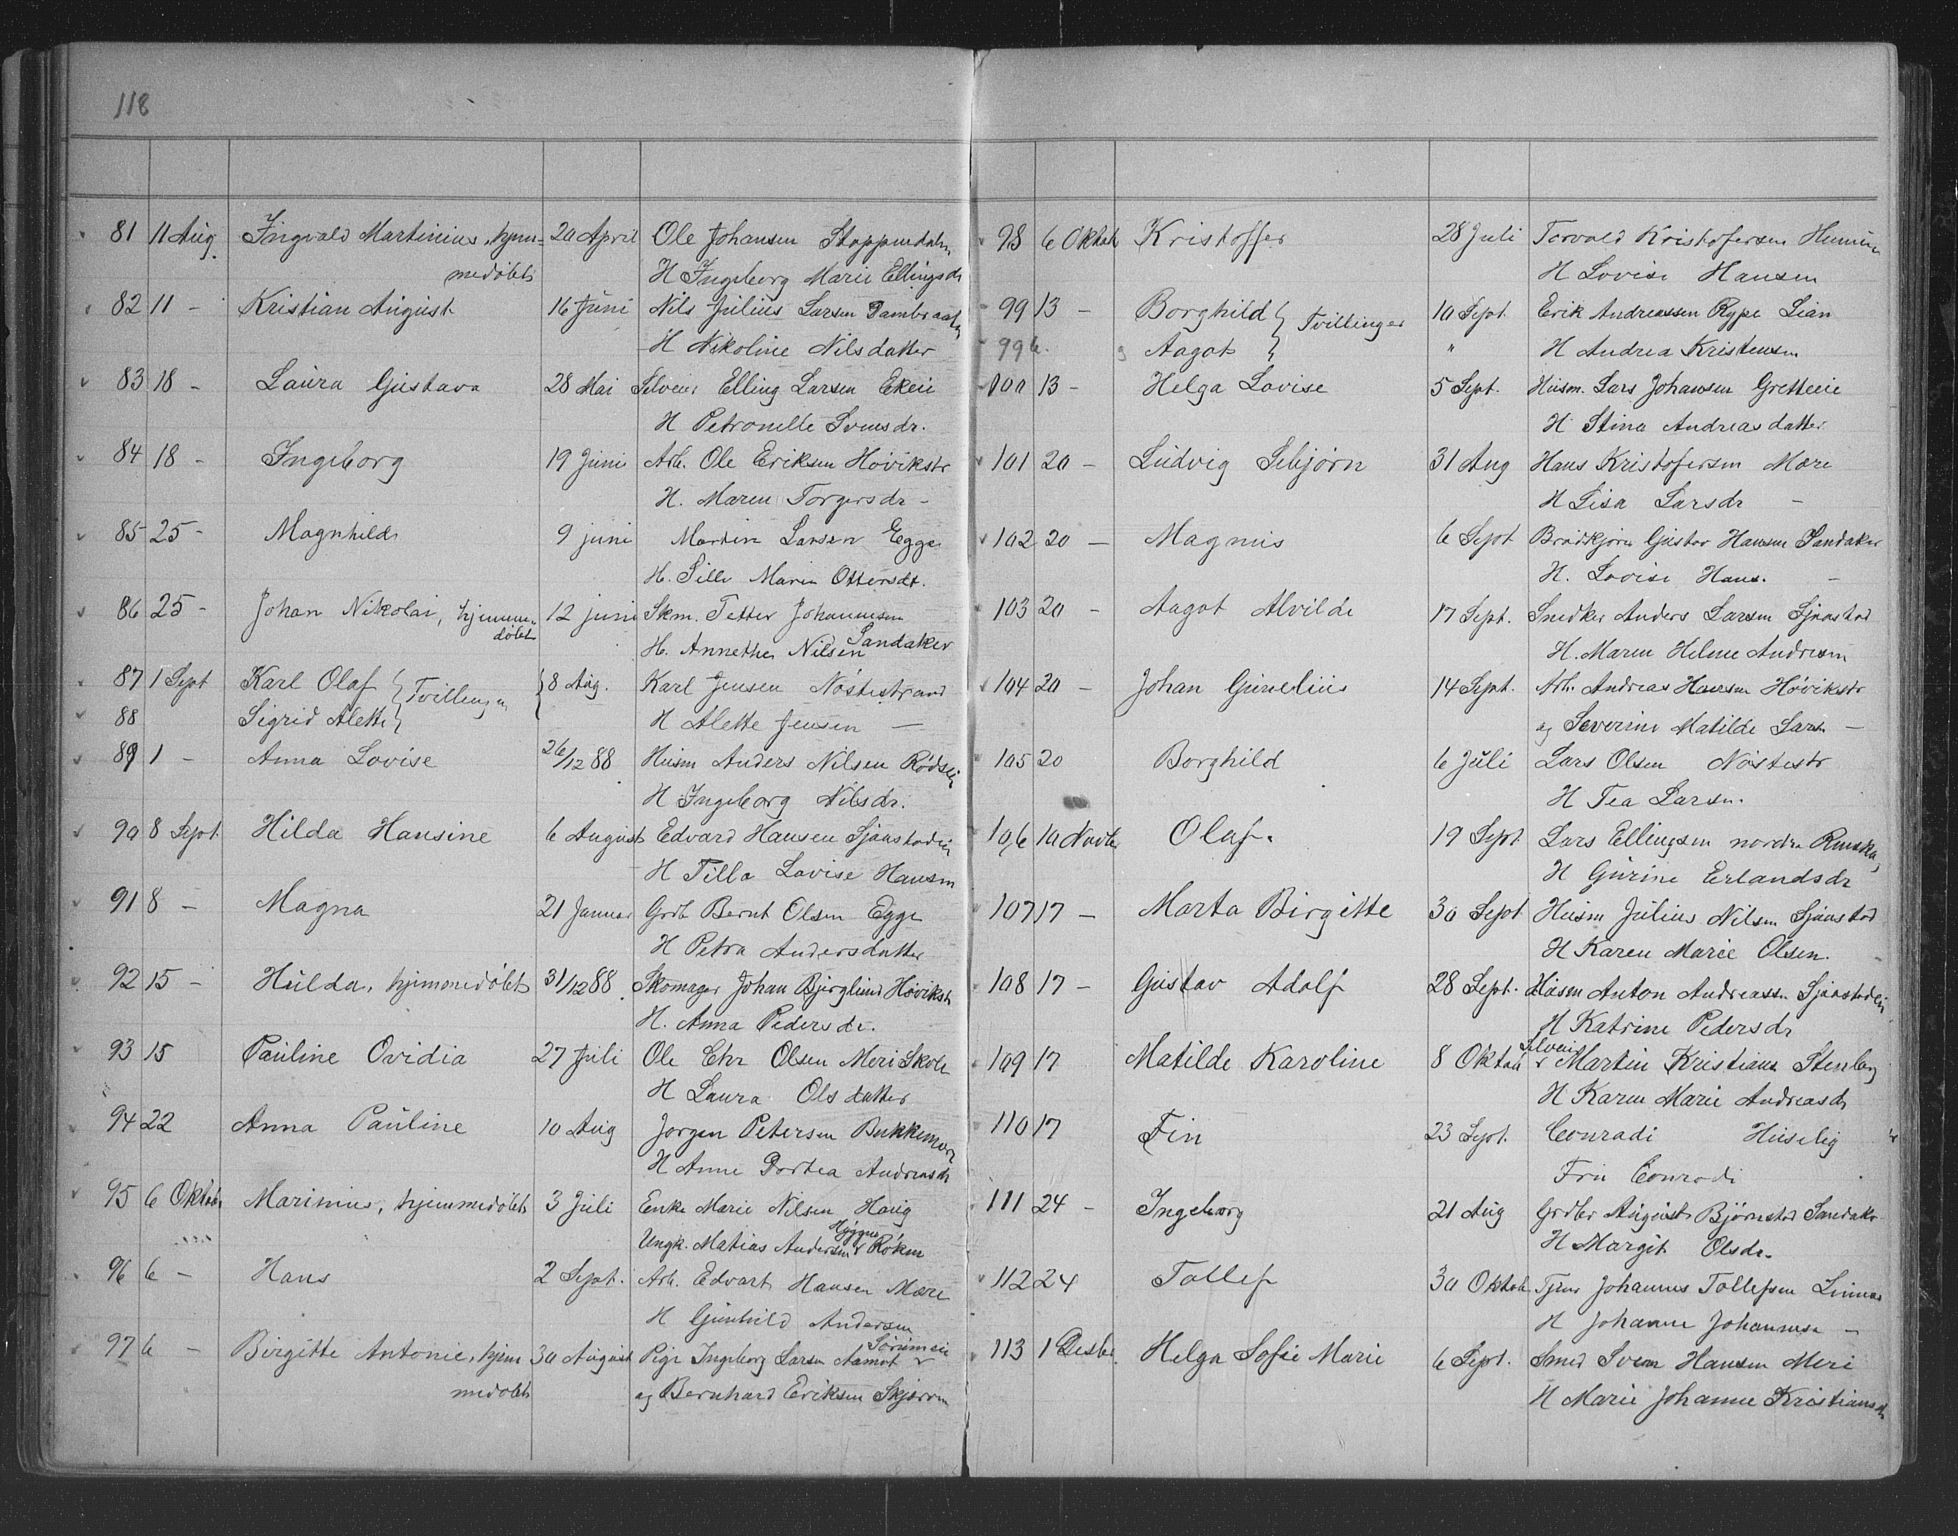 118
81 11 Aug. Ingvald Martinius, hjem- 20 April Ole Johansen Stoppendahl
medøbt H Ingeborg Marie Ellingsdr
82 11 - Kristian August 16 Juni Nils Julius Larsen Dambraaten
H Nikoline Nilsdatter
83 18 - Laura Gustava 28 Mai Selveier Elling Larsen Ekeie
H Petronelle Svensdr.
84 18 - Ingeborg 19 Juni Arb. Ole Eriksen Høvikstr
H. Maren Torgersdr -
85 25 - Magnhild 9 juni Martin Larsen Egge
H. Sille Marie Ottersdt.
86 25 - Johan Nikolai, hjemme- 12 juni Skm. Petter Johannesen
døbt Sandaker
H. Annethe Nilsen
87 1 Sept Karl Olaf } Tvillinger { 8 Aug. Karl Jensen Nøstestrand
88 Sigrid Alette } H Alette Jensen -
89 1 - Anna Lovise 26/12 88 Husm Anders Nilsen Rødseie
H Ingeborg Nilsdr.
90 8 Sept. Hilda Hansine 6 August Edvard Hansen Sjaastadeie
H Tilla Lovise Hansen
91 8 - Magna 21 Januar Grdb Bernt Olsen Egge
H Petra Andersdatter
92 15 - Hulda, hjemmedøbt 31/12 88 Skomager Johan Bjerglund Høvikstr
H. Anna Pedersdr.
93 15 Pauline Ovidia 27 Juli Ole Chr Olsen Meri Skole
H Laura Olsdatter
94 22 Anna Pauline 10 Aug Jørgen Petersen Bukkemoen
H Anne Dortea Andreasdr
95 6 Oktob Marinius, hjemmedøbt 3 Juli Enke Marie Nilsen Haug
Høggne
Ungk. Matias Andersen Røken
96 6 - Hans 2 Sept. Arb. Edvart Hansen Mære
H Gunhild Andersen
97 6 - Birgitte Antonie, hjem 30 August Pige Ingeborg Larsen Aamot
medøbt og Bernhard Eriksen Skjerven
98 6 Oktob Kristoffer 28 Juli Torvald Kristofersen
H Lovise Hansen
99 13 - Borghild } Tvillinger 10 Sept. Erik Andreassen Rype Lian
99 b. g Aagot } " H Andrea Kristensen
100 13 - Helga Lovise 5 Sept. Husm. Lars Johansen Gretteeie
H. Stina Andreasdatter
101 20 - Ludvig Sebjørn 31 Aug Hans Kristofersen Mære
H Lisa Larsdr -
102 20 - Magnus 6 Sept Brødkjører Gustav Hansen Sandaker
H. Lovise Hans. -
103 20 - Aagot Alvilde 17 Sept. Snedker Anders Larsen Sjaastad
H. Maren Helene Andresen
104 20 - Johan Gunelius 14 Sept. Arb. Andreas Hansen Høvikstr
og Severine Matilde Lars -
105 20 Borghild 6 Juli Lars Olsen Nøstestr
H Tea Larsn.
106 10 Novbr Olaf. 19 Sept Lars Ellingsen nordre
H Gurine Erlandsdr
107 17 - Marta Birgitte 30 Sept Husm Julius Nilsen Sjaastad
H Karen Marie Olsen.
108 17 - Gustav Adolf 28 Sept. Husm Anton Andreassn Sjaastadeie
H Katrine Pedersdr
109 17 Matilde Karoline 8 Oktob Selveier Martin Kristians Stenberg
H Karen Marie Andreasdr
110 17 Fin 23 Sept. Conradi Huseby
Fru Conradi
111 24 - Ingeborg 21 Aug Grdbr August Bjørnstad Sandaker
H Margit Olsdr.
112 24 Tollef 30 Oktob. Tjens Johannes Tollefsen Linnes
H Johanne Johannesn -
113 1 Desbr. Helga Sofie Marie 6 Sept. Smed Sven Hansen Meri
H Marie Johanne Kristiansdr